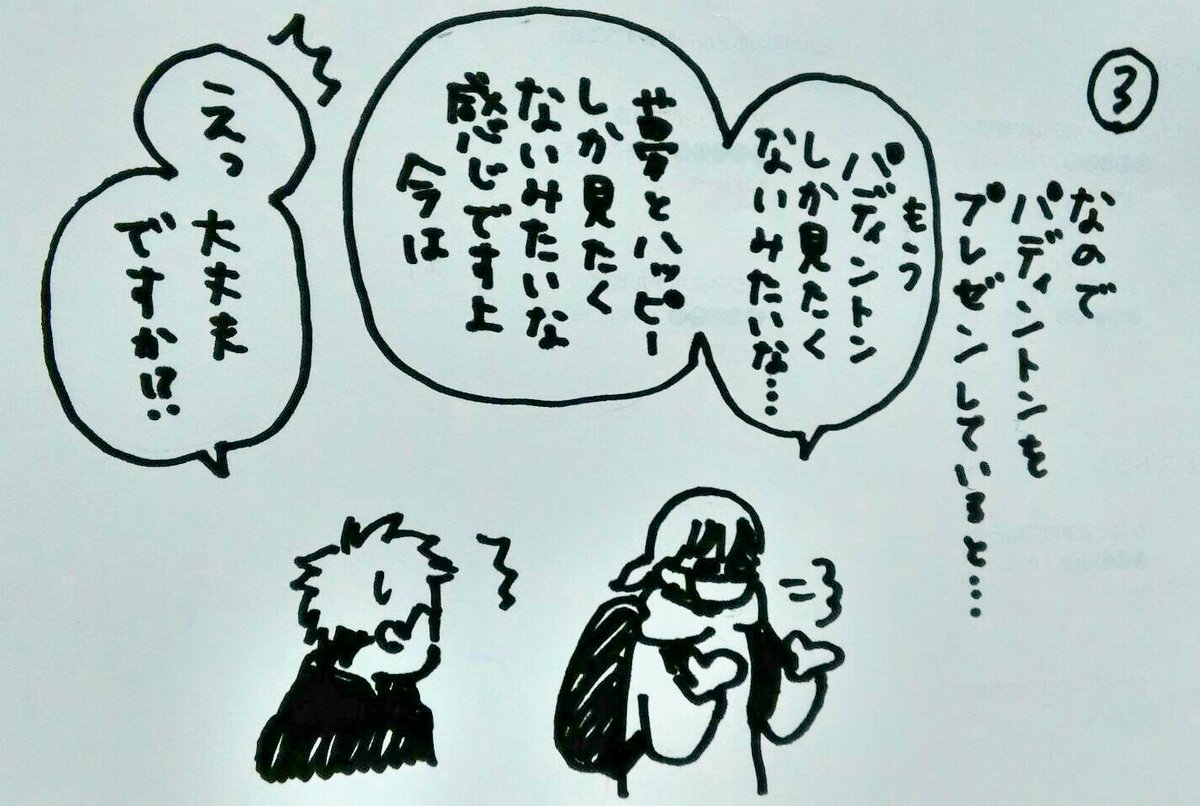 ③
なので
パディントンを
プレゼンしていると…
もう
パディントン
しか見たく
ないみたいな…
夢とハッピー
しか見たく
ないみたいな
感じです上
今は
えっ
大夫夫
ですか!?